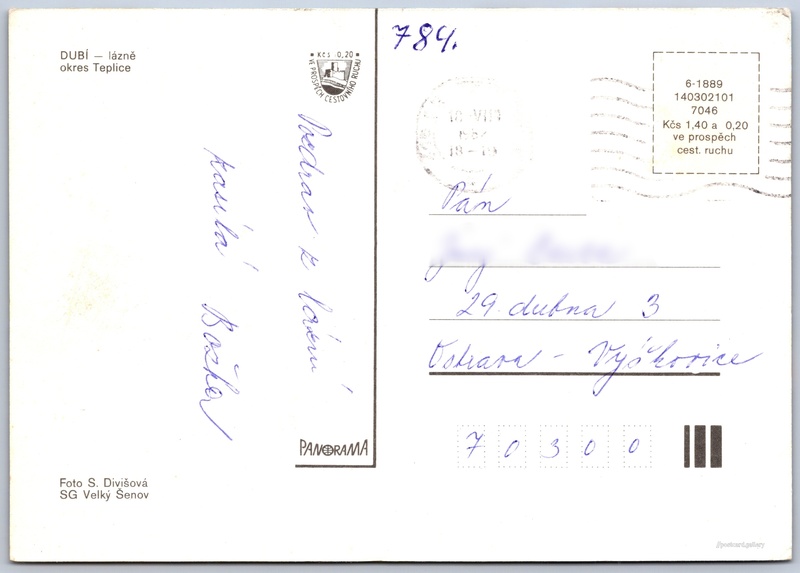 DUBÍ — lázně
okres Teplice
Kčs 0,20
VE PROSPĚCH CESTOVNÍHO RUCHU
Pozdrav z Lázní
zasílá Božka
PANORAMA
Foto S. Divišová
SG Velký Šenov
784.
18. VIII
18 - 19
6-1889
140302101
7046
Kčs 1,40 a 0,20
ve prospěch
cest. ruchu
Pán
29. dubna 3
Ostrava - Výškovice
70300